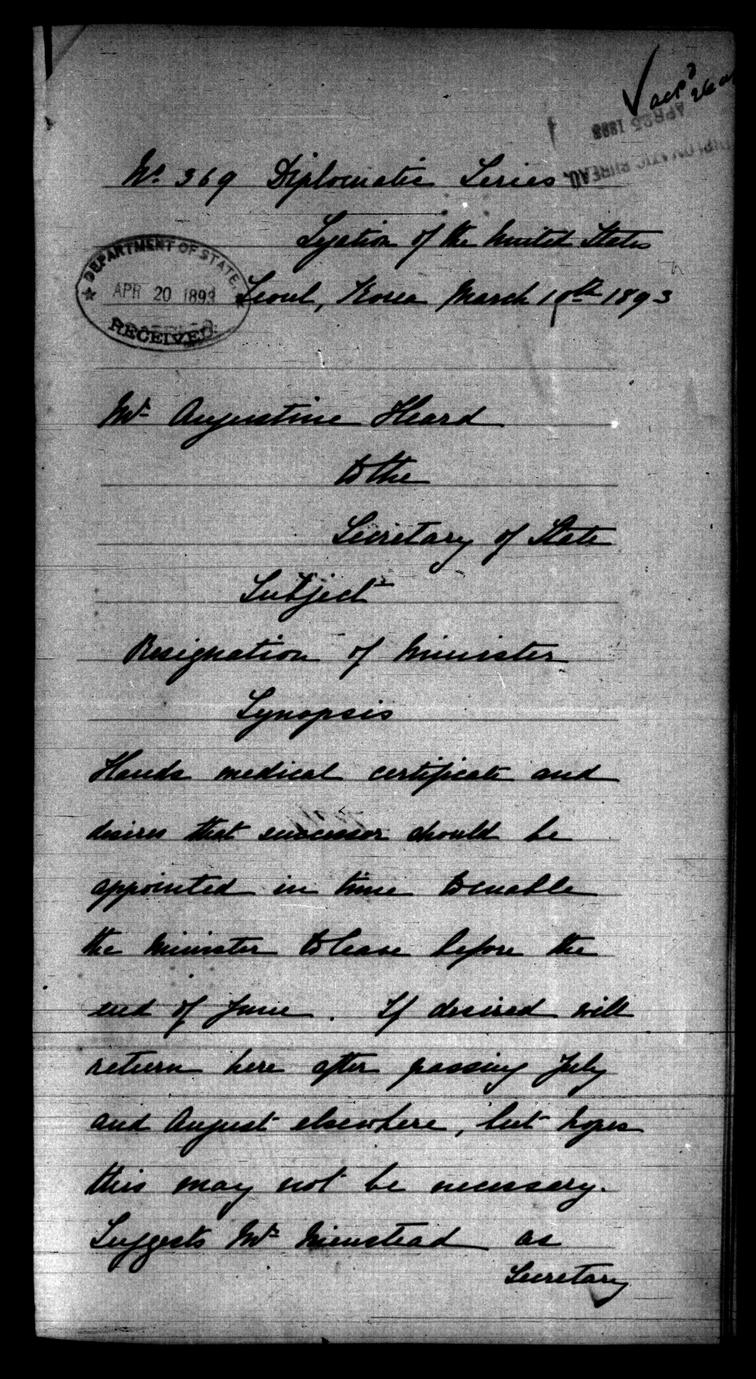 ack'd
APR 25 1893
DIPLOMATIC BUREAU.
No. 369 Diplomatic Series
Legation of the United States
DEPARTMENT OF STATE.
APR 20 1893
RECEIVED.
Seoul, Korea March 1893
Mr Augustine Heard
to the
Secretary of State
Subject
Resignation of Minister
Synopsis
Hands medical certificate and
desires that successor should be
appointed in time to enable
the Minister to leave before the
end of June. If desired will
return here after passing July
and August elsewhere, but hopes
this may not be necessary.
Suggests Mr as
Secretary